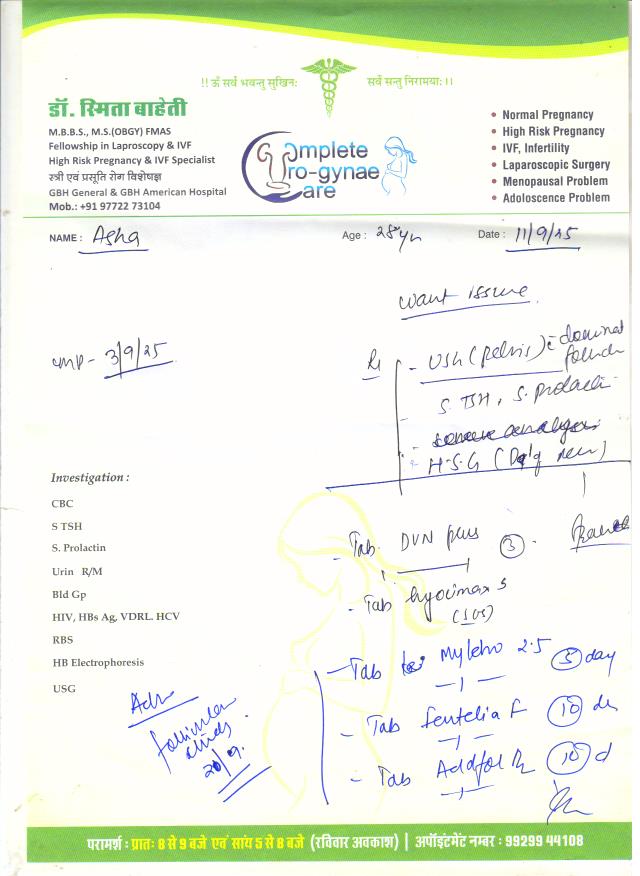 !! ॐ सर्वे भवन्तु सुखिनः सर्वे सन्तु निरामयाः ।।
डॉ. स्मिता बाहेती
M.B.B.S., M.S.(OBGY) FMAS
Fellowship in Laproscopy & IVF
High Risk Pregnancy & IVF Specialist
स्त्री एवं प्रसूति रोग विशेषज्ञ
GBH General & GBH American Hospital
Mob.: +91 97722 73104
Complete
Uro-gynae
Care
• Normal Pregnancy
• High Risk Pregnancy
• IVF, Infertility
• Laparoscopic Surgery
• Menopausal Problem
• Adoloscence Problem
NAME : Asha Age : 28 yr Date : 11/9/25
want issue
LMP - 3/9/25
- USG (pelvis) : dominant
S. TSH, S. Prolactin
H.S.G
Investigation :
CBC
S TSH
S. Prolactin
Urin R/M
Bld Gp
HIV, HBs Ag, VDRL. HCV
RBS
HB Electrophoresis
USG
- Tab. DVN plus (3)
- Tab hyocimax S
(SOS)
- Tab Myletro 2.5 (5) day
- Tab Fentelia F (10) d
- Tab Addfol (10) d
Adv
follicular
20/9.
परामर्श : प्रातः 8 से 9 बजे एवं सांय 5 से 8 बजे (रविवार अवकाश) | अपॉइंटमेंट नम्बर : 99299 44108